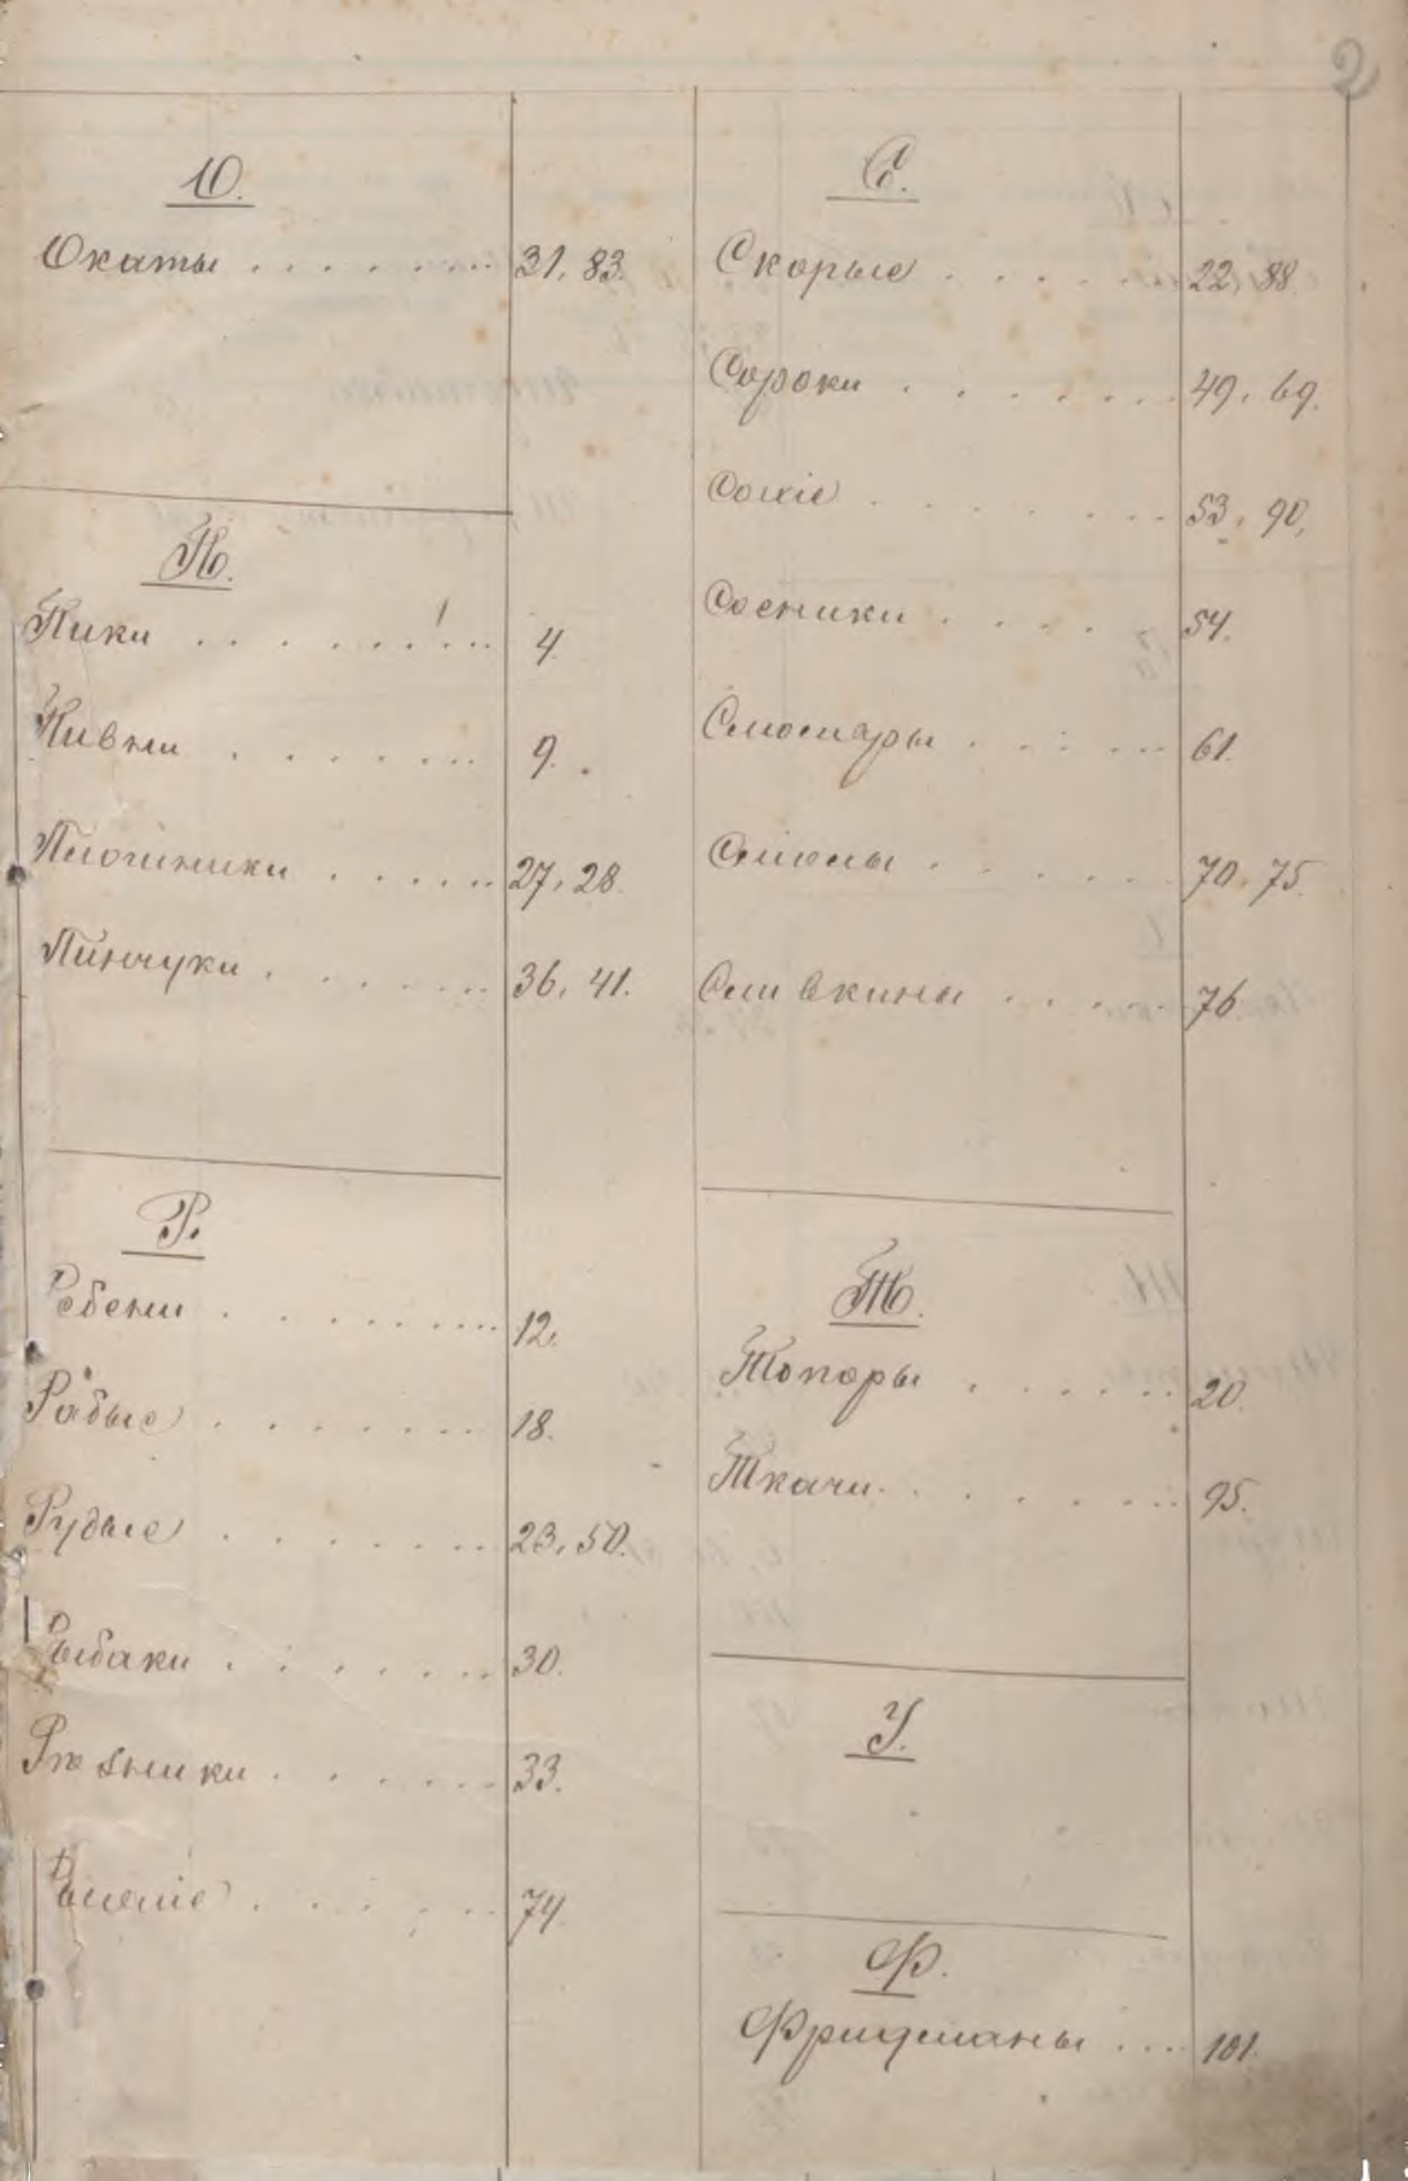 2
О.
Окаты . . . . . . . 31, 83.
П.
Пики . . . . . . . . 4.
Пивни . . . . . . . 9.
Плотники . . . . . 27, 28.
Пинчуки . . . . . . 36, 41.
Р.
Ребени . . . . . . . 12.
Рабые . . . . . . . 18.
Рудые . . . . . . . 23, 50.
Рыбаки . . . . . . . 30.
Рѣзники . . . . . . 33.
74.
С.
Скорые . . . . . . 22, 88.
Сороки . . . . . . . 49, 69.
Сохіе . . . . . . . 53, 90.
Сосники . . . . 54.
Слюсары . . . . . . 61.
70, 75.
Сливкины . . . . . 76.
Т.
Топоры . . . . . . 20.
Ткачи . . . . . . . 95.
У.
Ф.
Фридманы . . . . 101.